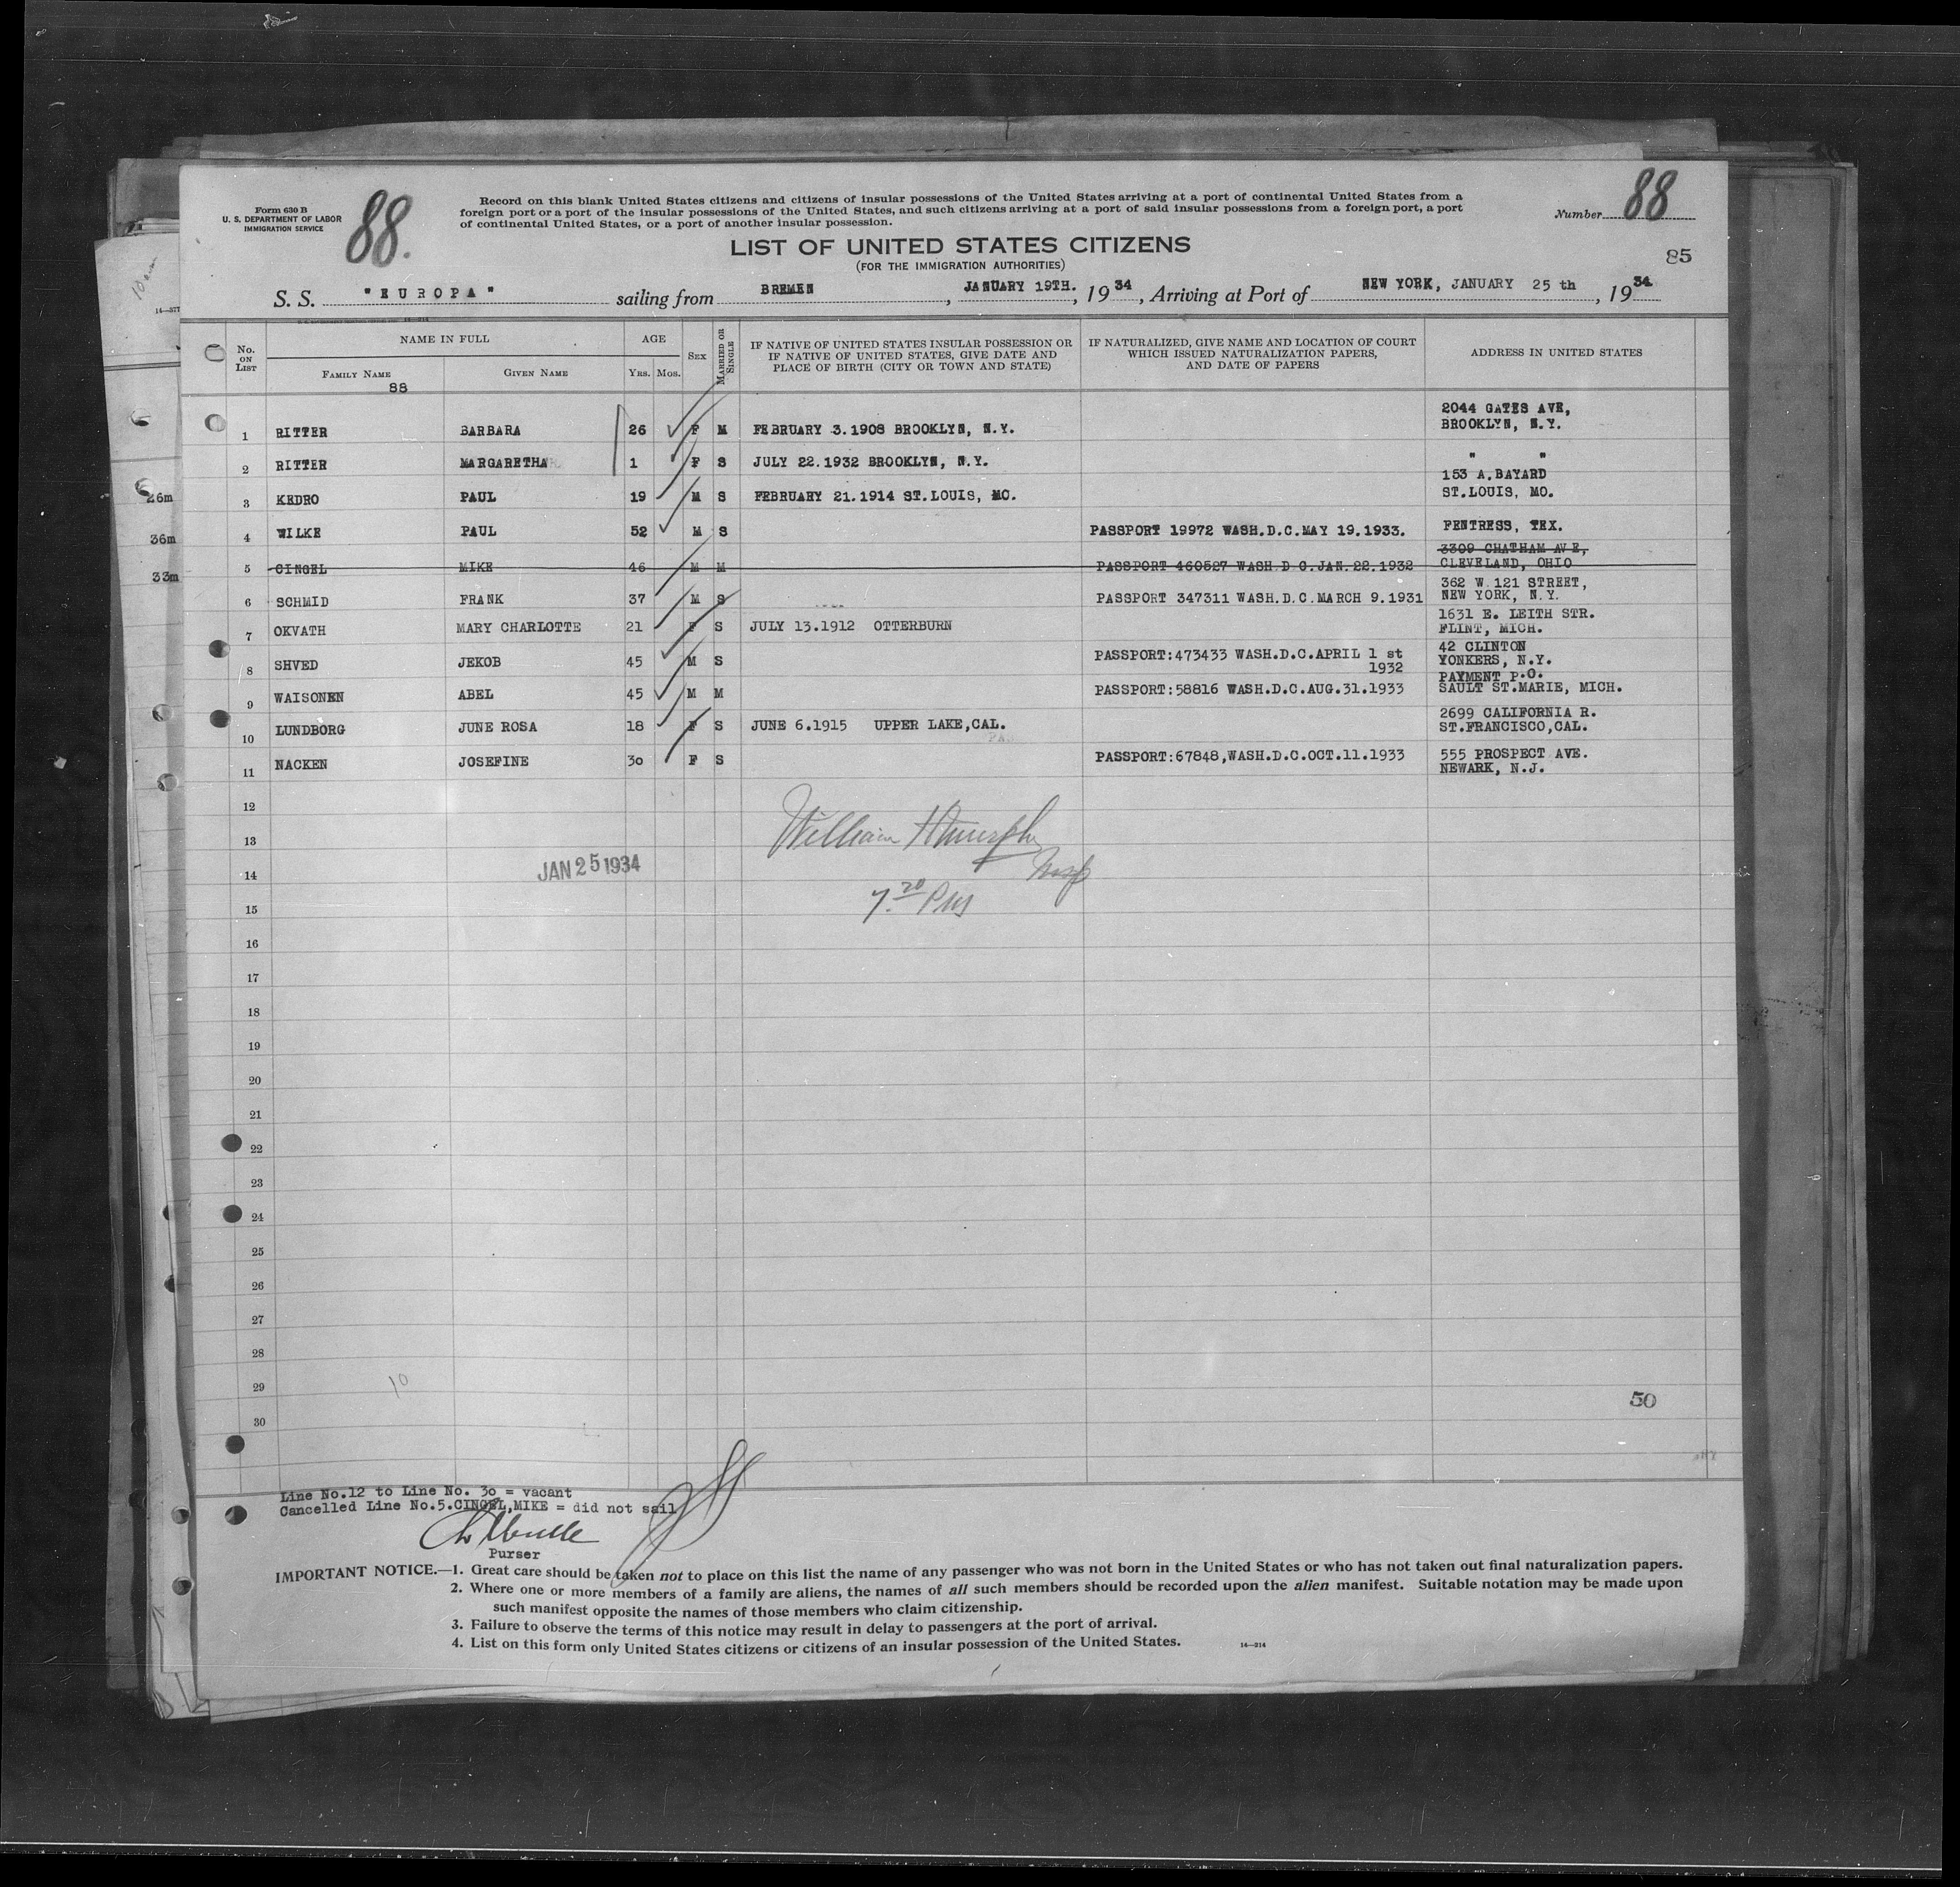 Form 630 B
U. S. DEPARTMENT OF LABOR
IMMIGRATION SERVICE
88.
Record on this blank United States citizens and citizens of insular possessions of the United States arriving at a port of continental United States from a
foreign port or a port of the insular possessions of the United States, and such citizens arriving at a port of said insular possessions from a foreign port, a port
of continental United States, or a port of another insular possession.
Number 88
85
LIST OF UNITED STATES CITIZENS
(FOR THE IMMIGRATION AUTHORITIES)
S. S. "EUROPA" sailing from BREMEN, JANUARY 19TH., 1934, Arriving at Port of NEW YORK, JANUARY 25 th, 1934
No. ON LIST NAME IN FULL AGE SEX MARRIED OR SINGLE IF NATIVE OF UNITED STATES INSULAR POSSESSION OR IF NATIVE OF UNITED STATES, GIVE DATE AND PLACE OF BIRTH (CITY OR TOWN AND STATE) IF NATURALIZED, GIVE NAME AND LOCATION OF COURT WHICH ISSUED NATURALIZATION PAPERS, AND DATE OF PAPERS ADDRESS IN UNITED STATES
FAMILY NAME GIVEN NAME YRS. MOS.
88
1 RITTER BARBARA 26 F M FEBRUARY 3.1908 BROOKLYN, N.Y. 2044 GATES AVE, BROOKLYN, N.Y.
2 RITTER MARGARETHA 1 F S JULY 22.1932 BROOKLYN, N.Y. " "
26m 3 KEDRO PAUL 19 M S FEBRUARY 21.1914 ST.LOUIS, MO. 153 A.BAYARD ST.LOUIS, MO.
36m 4 WILKE PAUL 52 M S PASSPORT 19972 WASH.D.C.MAY 19.1933. FENTRESS, TEX.
33m 5 CINGEL MIKE 46 M M PASSPORT 460527 WASH.D.C.JAN.22.1932 3309 CHATHAM AVE, CLEVELAND, OHIO
6 SCHMID FRANK 37 M S PASSPORT 347311 WASH.D.C.MARCH 9.1931 362 W.121 STREET, NEW YORK, N.Y.
7 OKVATH MARY CHARLOTTE 21 F S JULY 13.1912 OTTERBURN 1631 E. LEITH STR. FLINT, MICH.
8 SHVED JEKOB 45 M S PASSPORT:473433 WASH.D.C.APRIL 1 st 1932 42 CLINTON YONKERS, N.Y.
9 WAISONEN ABEL 45 M M PASSPORT:58816 WASH.D.C.AUG.31.1933 PAYMENT P.O. SAULT ST.MARIE, MICH.
10 LUNDBORG JUNE ROSA 18 F S JUNE 6.1915 UPPER LAKE,CAL. 2699 CALIFORNIA R. ST.FRANCISCO,CAL.
11 NACKEN JOSEFINE 30 F S PASSPORT:67848,WASH.D.C.OCT.11.1933 555 PROSPECT AVE. NEWARK, N.J.
12
13 William H Murphy
Insp
14 JAN 25 1934
15 7.20 PM
16
17
18
19
20
21
22
23
24
25
26
27
28
29 10 50
30
Line No.12 to Line No. 30 = vacant
Cancelled Line No.5.CINGEL,MIKE = did not sail
Purser
IMPORTANT NOTICE.—1. Great care should be taken not to place on this list the name of any passenger who was not born in the United States or who has not taken out final naturalization papers.
2. Where one or more members of a family are aliens, the names of all such members should be recorded upon the alien manifest. Suitable notation may be made upon
such manifest opposite the names of those members who claim citizenship.
3. Failure to observe the terms of this notice may result in delay to passengers at the port of arrival.
4. List on this form only United States citizens or citizens of an insular possession of the United States. 14—214